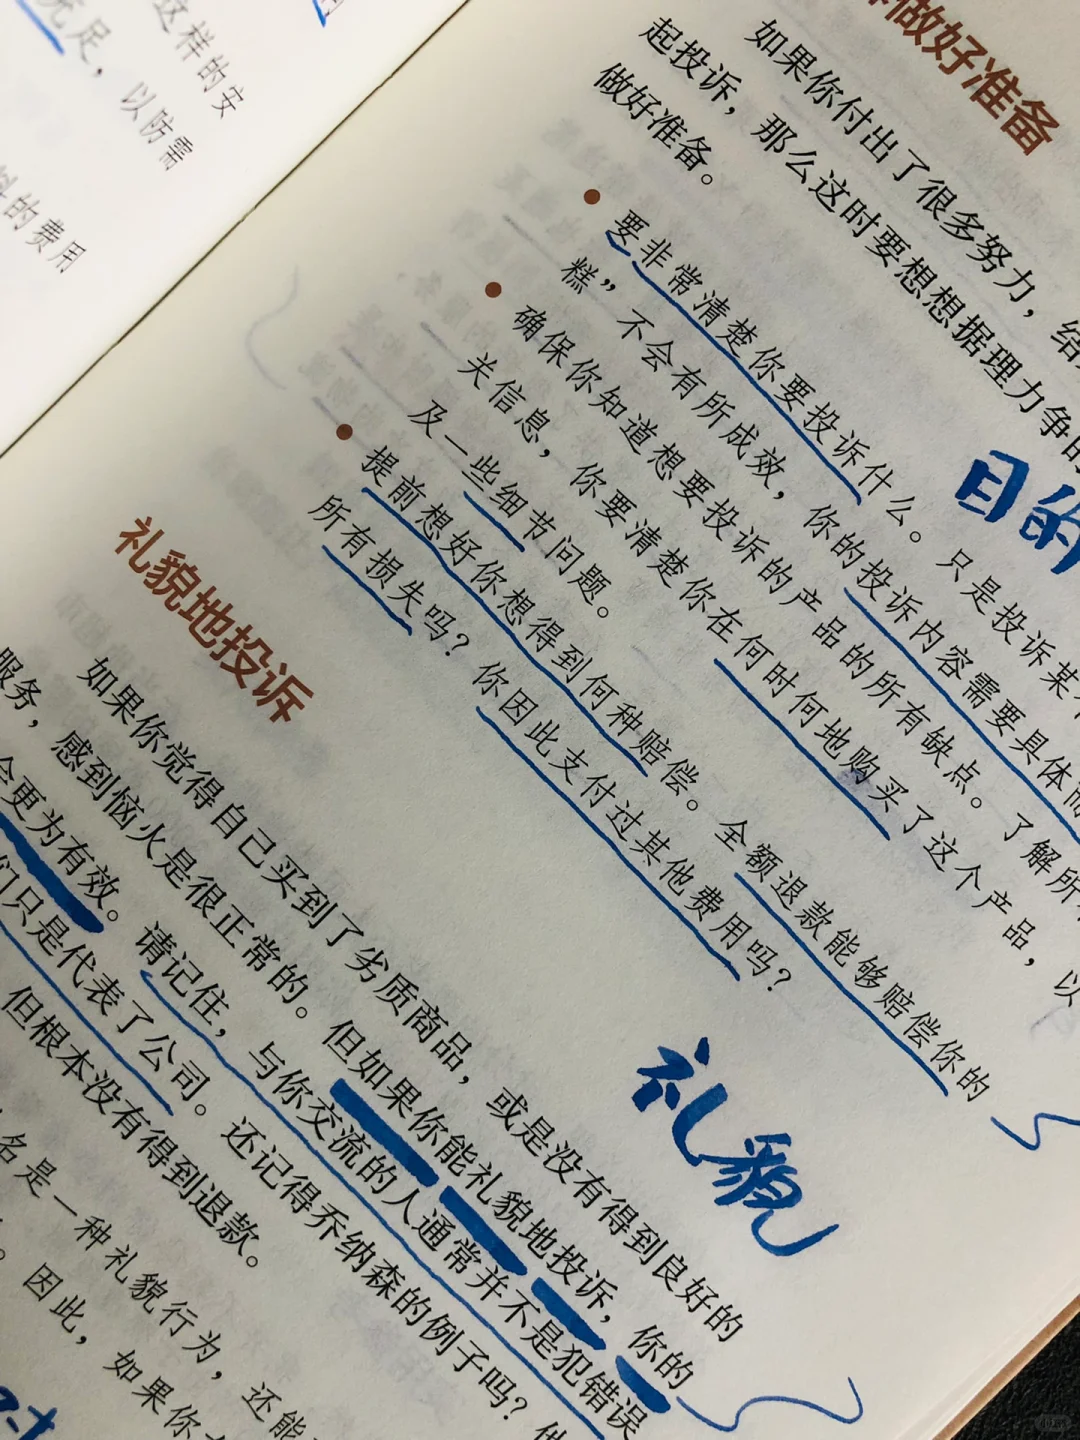 这样的安
充足，以防需
的费用
做好准备
如果你付出了很多努力，结
起投诉，那么这时要想想据理力争的
做好准备。
● 要非常清楚你要投诉什么。只是投诉某
糕”不会有所成效，你的投诉内容需要具体
● 确保你知道想要投诉的产品的所有缺点。了解所
关信息，你要清楚你在何时何地购买了这个产品，以
及一些细节问题。
● 提前想好你想得到何种赔偿。全额退款能够赔偿你的
所有损失吗？你因此支付过其他费用吗？
目的
礼貌地投诉
礼貌
如果你觉得自己买到了劣质商品，或是没有得到良好的
服务，感到恼火是很正常的。但如果你能礼貌地投诉，你的
会更为有效。请记住，与你交流的人通常并不是犯错误
们只是代表了公司。还记得乔纳森的例子吗？他
但根本没有得到退款。
名是一种礼貌行为，还能
。因此，如果你